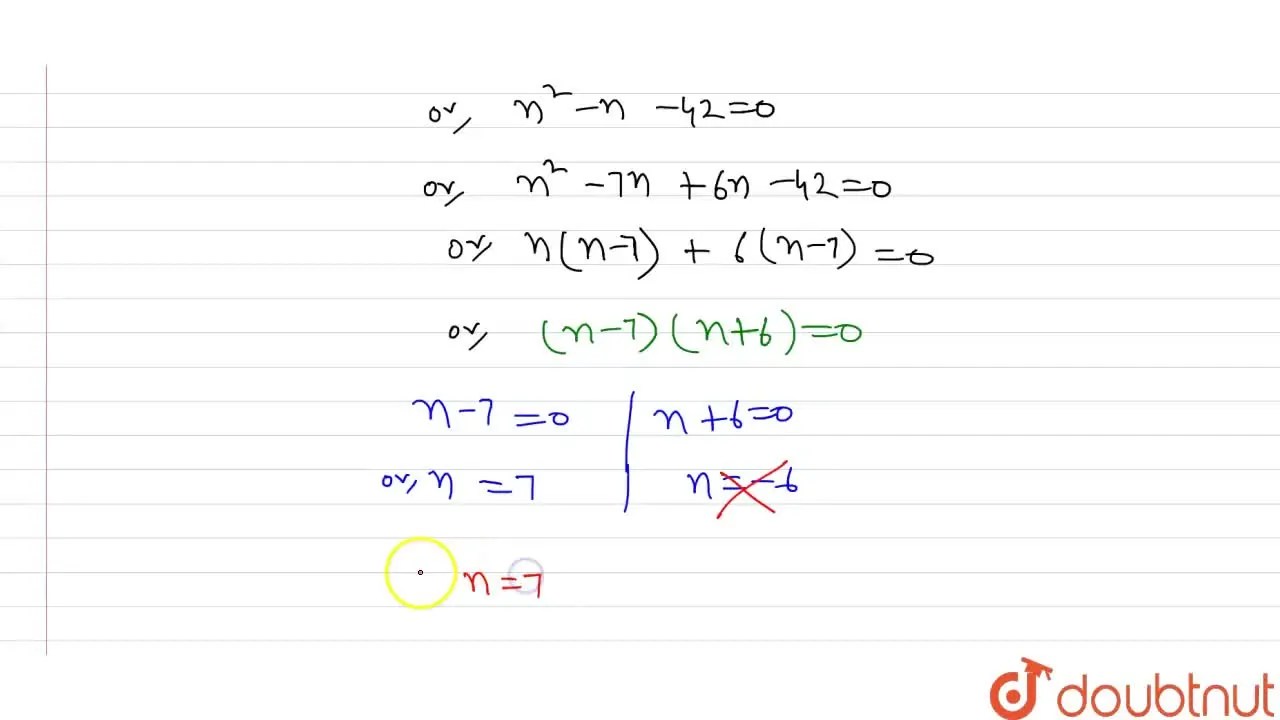 or, n² - n - 42 = 0
or, n² - 7n + 6n - 42 = 0
or, n(n-7) + 6(n-7) = 0
or, (n-7)(n+6) = 0
n - 7 = 0 | n + 6 = 0
or, n = 7 | n = -6
n = 7
doubtnut